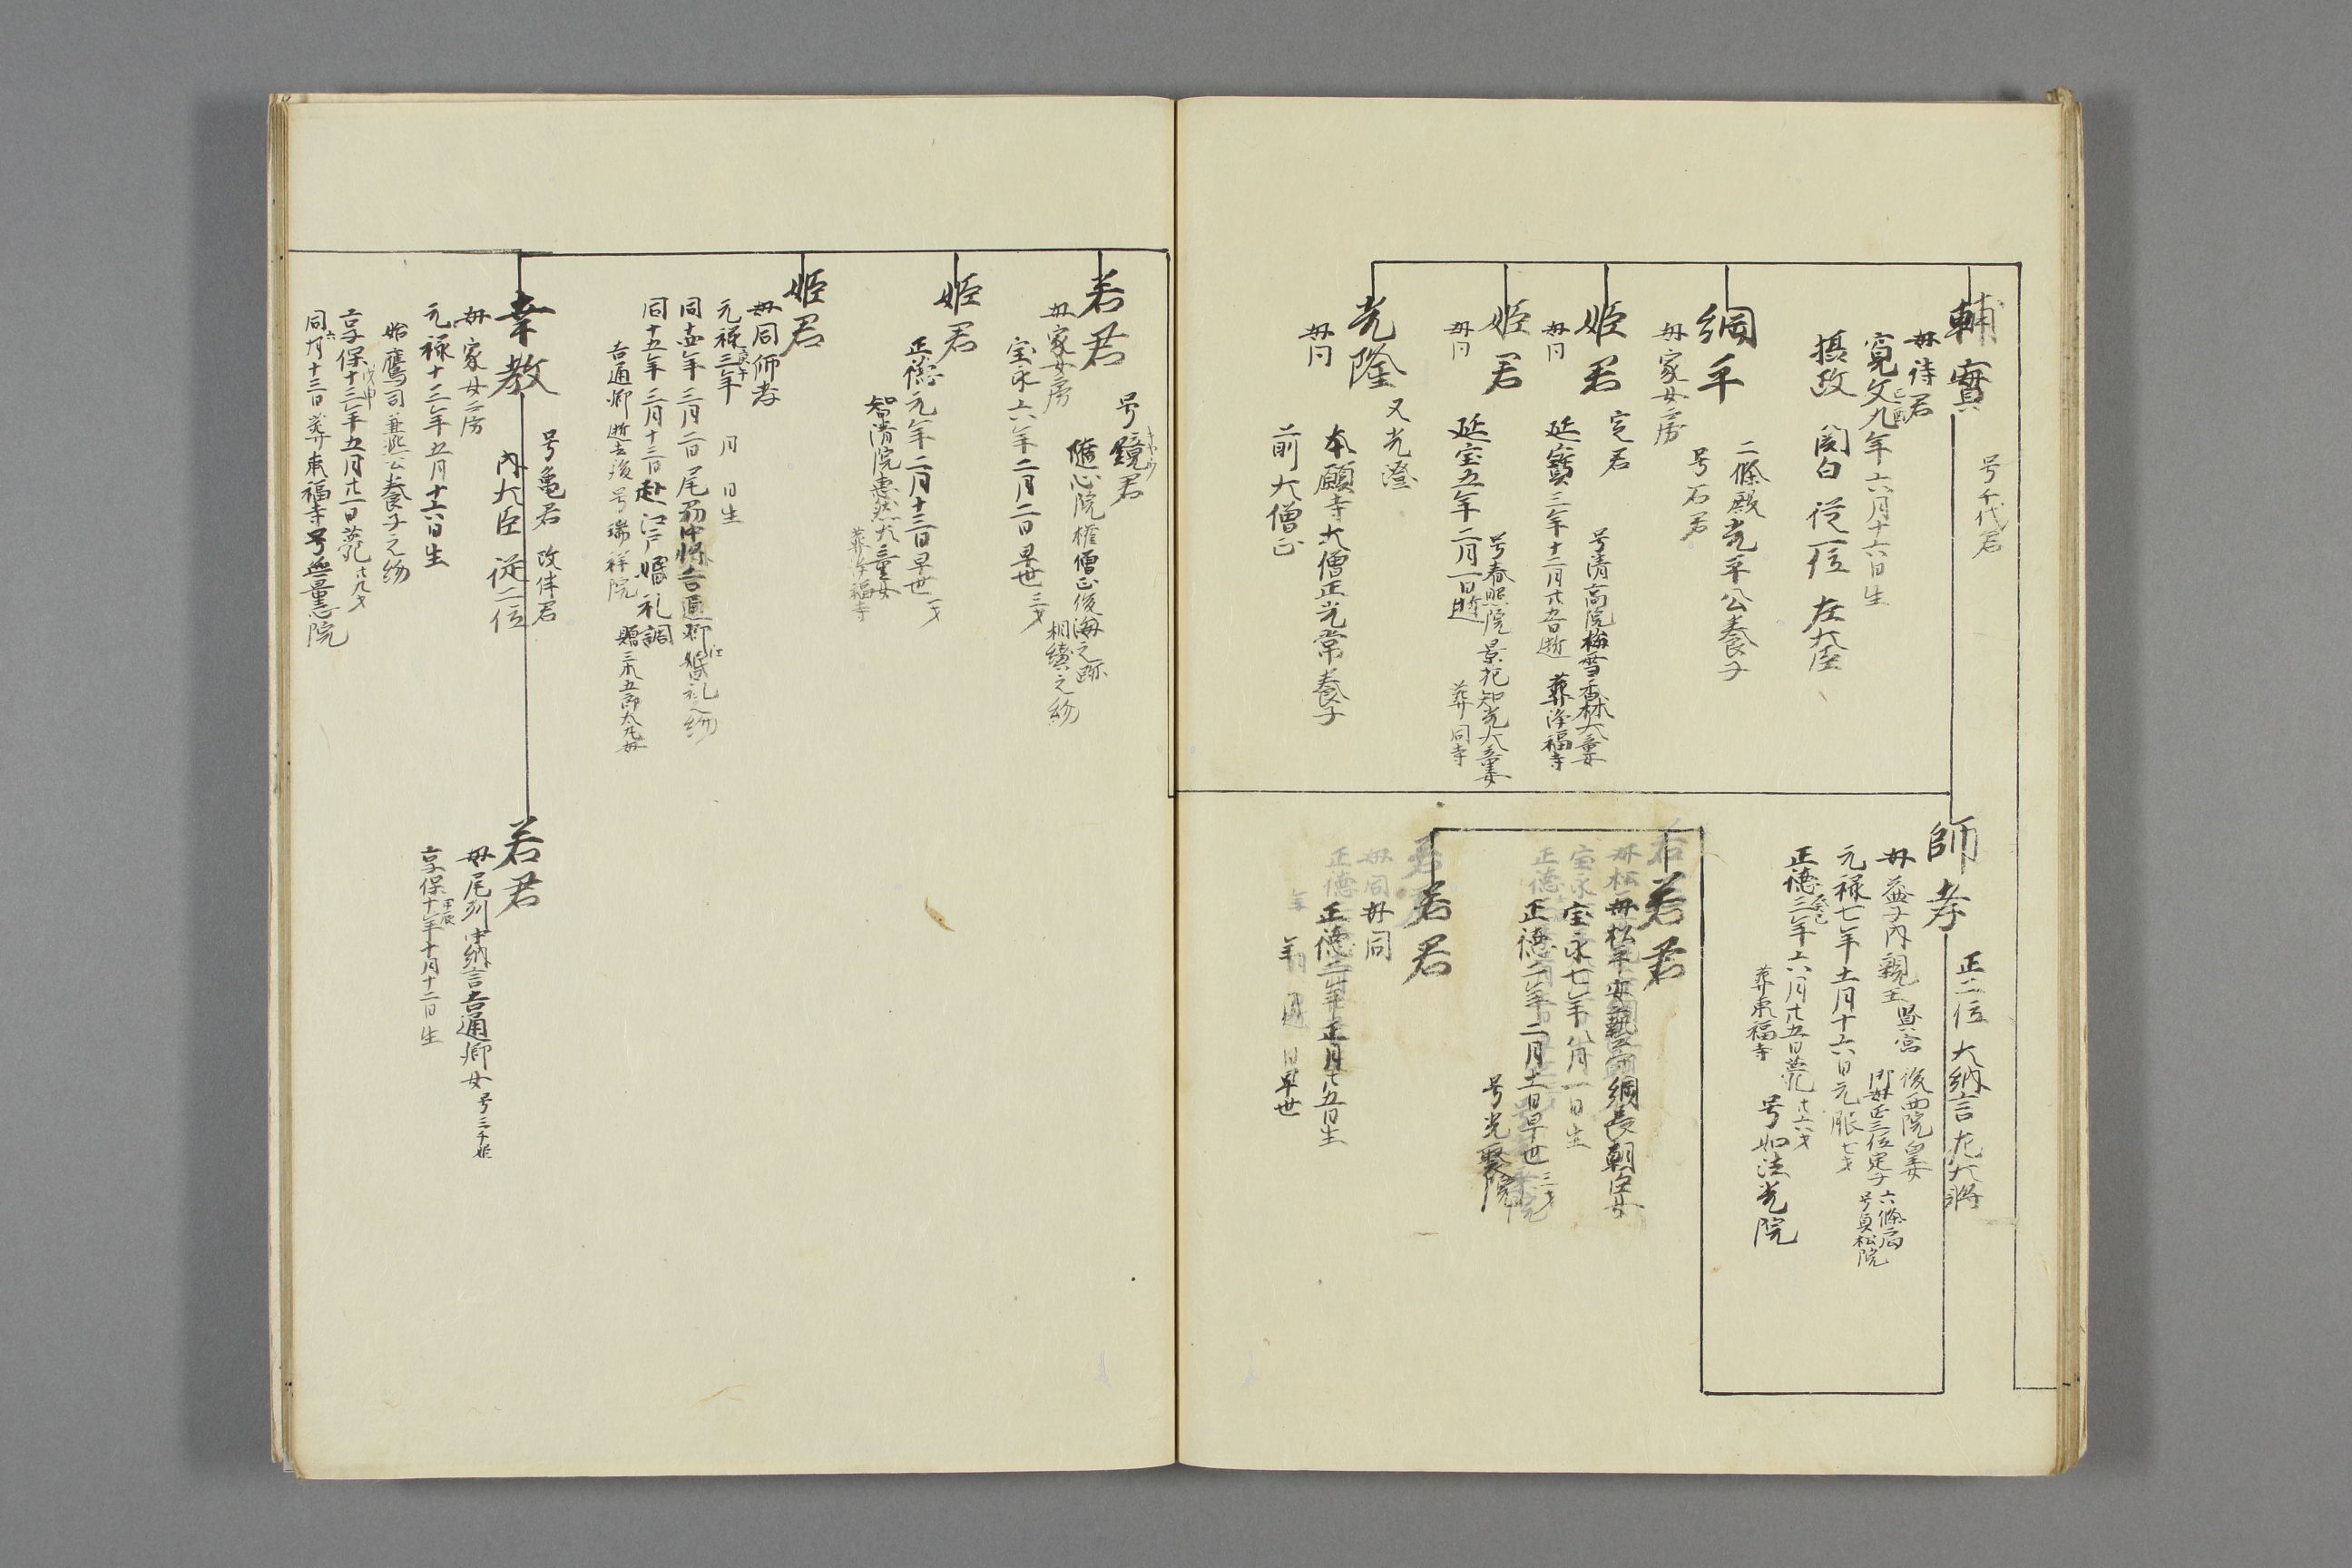 輔實
号千代君
母待君
寛文九年六月十六日生
己酉
摂政 関白 従一位 左大臣
綱平
二條殿光平公養子
号石君
母家女房
姫君
定君
母同
号清高院梅雪香林大童女
延寶三年十二月廿五日逝 葬浄福寺
姫君
母同
号春照院景把知光大童女
延宝五年二月一日逝 葬同寺
光隆
又光澄
母同
本願寺大僧正光常養子
前大僧正
師孝
正二位 大納言左大将
母益子内親王 賢宮
後西院皇女
御母正三位定子
六條局
号貞松院
元禄七年十一月十六日元服 七才
正徳三年六月廿五日薨 廿六才
癸巳
葬東福寺
号如法光院
若君
母松平安藝守綱長朝臣女
宝永七年八月一日生
正徳二年二月十一日早世 三才
号光聚院
若君
母同
正徳二年正月廿五日生
年 月 日早世
若君
号鏡君
母家女房
随心院権僧正俊海之跡
相續之約
宝永六年二月二日早世 三才
姫君
正徳元年二月十三日早世 一才
智清院恵然大童女
葬浄福寺
姫君
母同師孝
元禄三年 月 日生
庚午
同 年三月二日尾州中将吉通卿江 婚礼之約
同十五年三月十三日赴江戸婚礼調
吉通卿逝去後号瑞祥院
贈 五郎太九母
幸教
号亀君 改伴君
内大臣 従二位
母家女房
元禄十三年五月十六日生
始鷹司兼煕公養子之約
享保十三年五月廿一日薨 廿九才
戊申
同六月十三日葬東福寺号無量志院
若君
母尾州中納言吉通卿女 号三千姫
享保十年十月十二日生